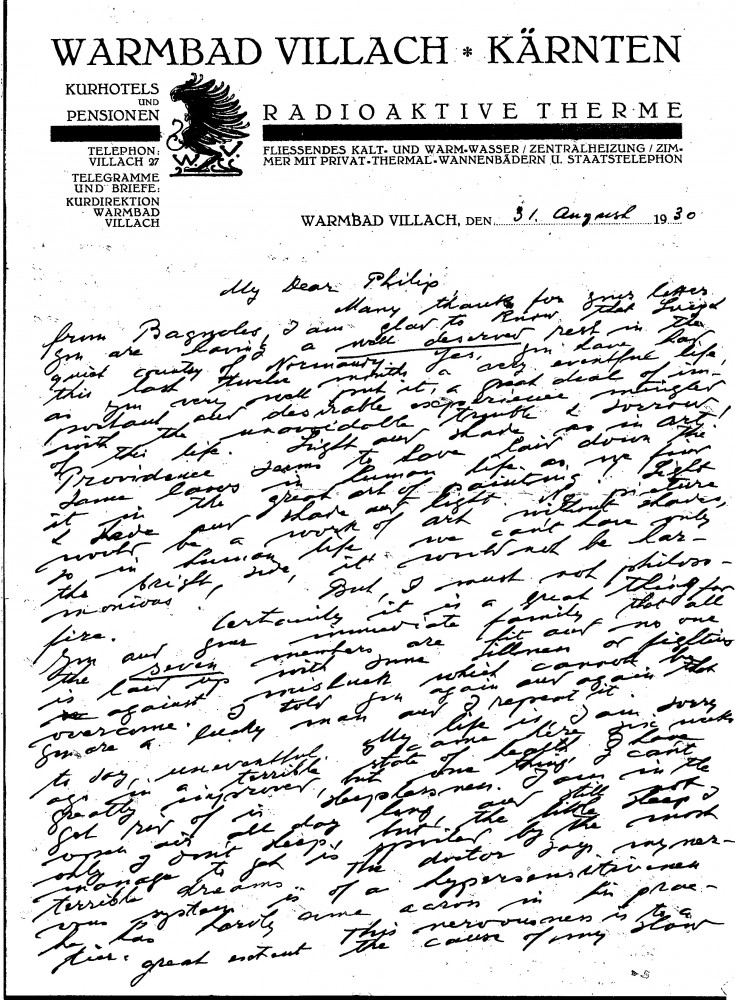 WARMBAD VILLACH * KÄRNTEN
KURHOTELS
UND
PENSIONEN
RADIOAKTIVE THERME
TELEPHON:
VILLACH 27
TELEGRAMME
UND BRIEFE:
KURDIREKTION
WARMBAD
VILLACH
W.V.
FLIESSENDES KALT- UND WARM-WASSER / ZENTRALHEIZUNG / ZIM-
MER MIT PRIVAT-THERMAL-WANNENBÄDERN U. STAATSTELEPHON
WARMBAD VILLACH, DEN 31. August 1930
My Dear Philip,
Many thanks for your letter
from Bagnoles, I am glad to know that
you are having a well deserved rest in the
quiet country of Normandy. Yes, you have had
this last twelve months a very eventful life,
as you very well put it, a great deal of im-
portant and desirable experience mingled
with the unavoidable trouble & sorrow
of this life. Light and shade as in art!
Providence seems to have laid down the
same laws in human life as we find
it in the great art of painting. Light
& shade and shade and light. No picture
would be a work of art without shades,
so in human life, we can't have only
the bright side, it would not be har-
monious. But, I must not philoso-
fize. Certainly it is a great thing for
you and your immediate family that all
the seven members are fit and no one
is laid up with some illness or fighting
against misluck which cannot be
overcome. I told you again and again that
you are a lucky man and I repeat it
to day. My life is, I am sorry
uneventful. I came here six weeks
ago in a terrible state of health. I have
greatly improved, but one thing I can't
get rid of is sleeplessness. I am in the
open air all day long and still not
only I don't sleep, but the little sleep I
manage to get is spoiled by the most
terrible dreams. The doctor says my ner-
vous system is of a hypersensitiveness
he has hardly come across in his prac-
tice. This nervousness is to a
great extent the cause of my slow